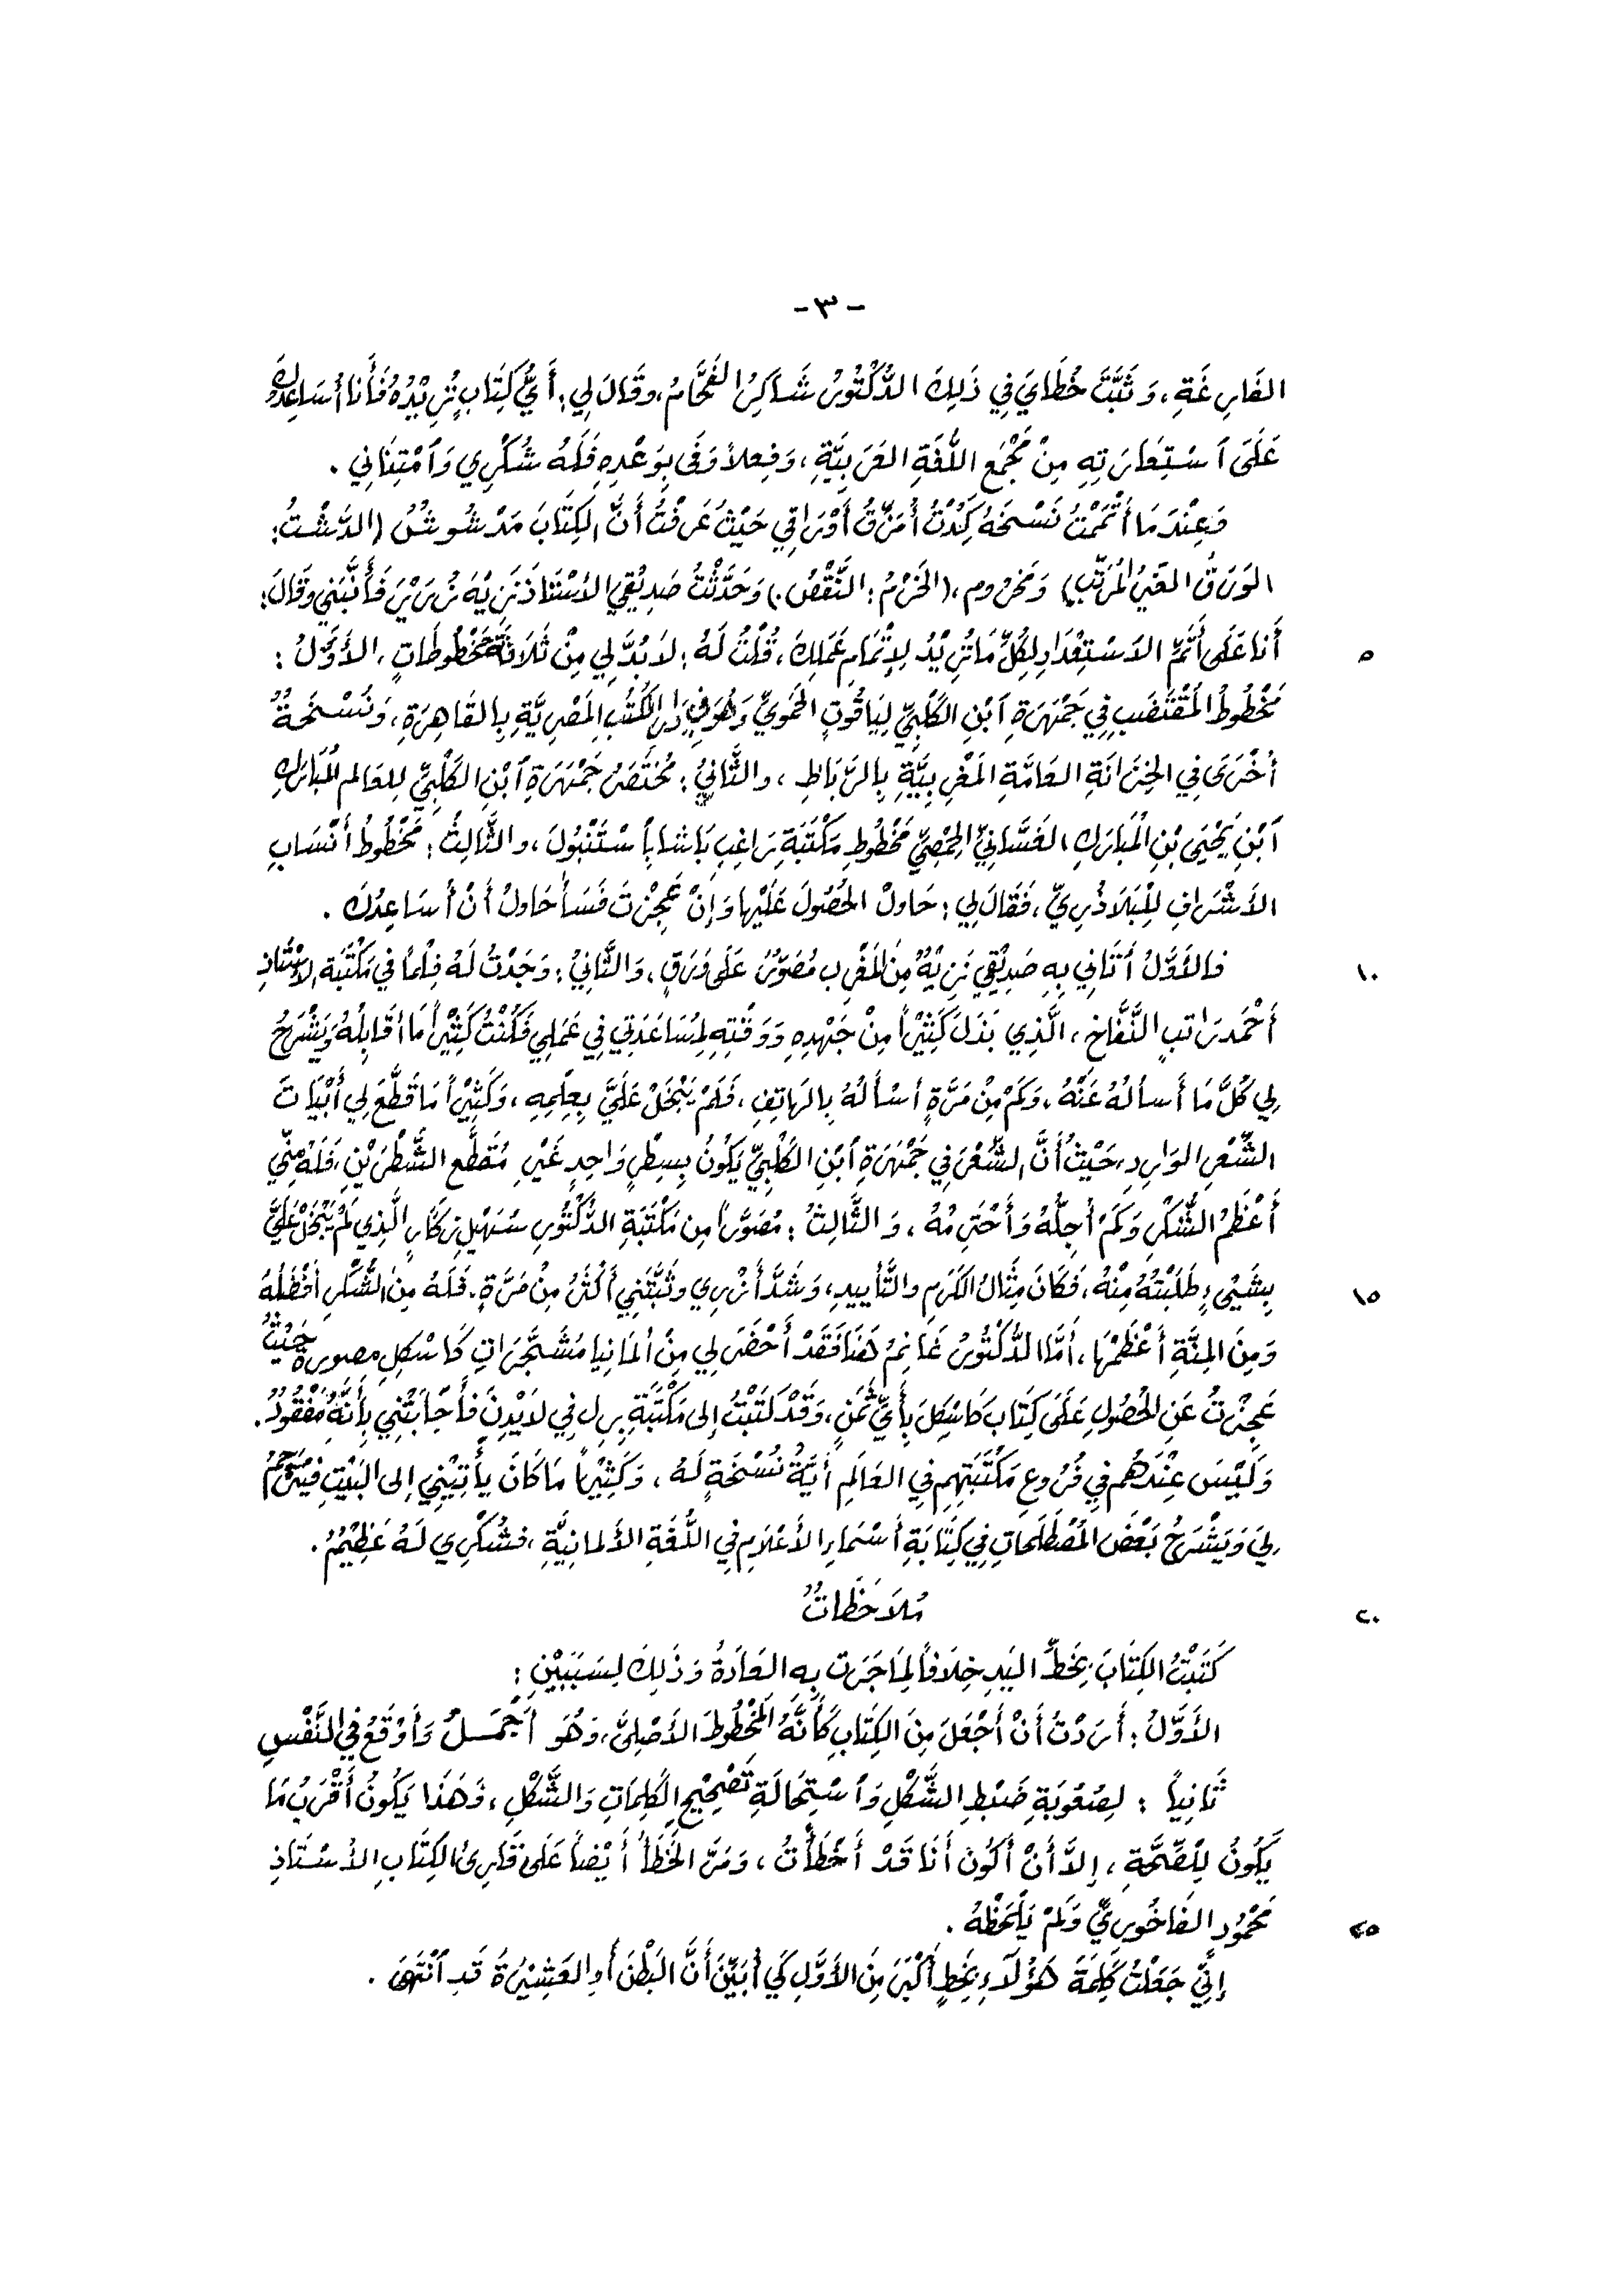 - ٣ -
الفَارِغَةِ، وَثَبَّتَ خُطَايَ فِي ذَلِكَ الدُّكْتُورُ شَاكِرُ الفَحَّامُ، وقَالَ لِي: أَيُّ كِتَابٍ تُرِيْدُهُ فَأَنا أُسَاعِدُكَ
عَلَى ٱسْتِعَارَتِهِ مِنْ مَجْمَعِ اللُّغَةِ العَرَبِيَّةِ، وَفِعلاً وَفَى بِوَعْدِهِ فَلَهُ شُكْرِي وَٱمْتِنَانِي .
وَعِنْدَمَا أَتْمَمْتُ نَسْخَهُ كِدْتُ أُمَزِّقُ أَوْرَاقِي حَيْثُ عَرَفْتُ أَنَّ الكِتَابَ مَدْشُوشٌ (الدَّشْتُ:
الوَرَقُ الغَيْرُ المُرَتَّبِ) وَمَخْرُوم، (الخَرْمُ: النَّقْصُ.) وَحَدَّثْتُ صَدِيْقِي الأُسْتَاذَ نَزِيْهَ زُرَيْرَ فَأَنَّبَنِي وقَالَ:
٥ أَنا عَلَى أَتَمِّ الاسْتِعْدَادِ لِكُلِّ مَا تُرِيْدُ لِإِتْمَامِ عَمَلِكَ، قُلْتُ لَهُ: لَابُدَّ لِي مِنْ ثَلَاثَةِ مَخْطُوطَاتٍ، الأَوَّلُ:
مَخْطُوطُ المُقْتَضَبِ فِي جَمْهَرَةِ ٱبْنِ الكَلْبِيِّ لِيَاقُوتٍ الحَمَوِيِّ وَهُوَ فِي دَارِ الكُتُبِ المَصْرِيَّةِ بِالقَاهِرَةِ، وَنُسْخَةٌ
أُخْرَى فِي الخِزَانَةِ العَامَّةِ المَغْرِبِيَّةِ بِالرَّبَاطِ، والثَّانِيُ: مُخْتَصَرُ جَمْهَرَةِ ٱبْنِ الكَلْبِيِّ لِلعَالِمِ المُبَارَكِ
ٱبْنِ يَحْيَى بْنِ المُبَارَكِ الغَسَّانِيِّ الحِمْصِيِّ مَخْطُوطِ مَكْتَبَةِ رَاغِبِ بَاشا بِٱسْتَنْبُولَ، والثَّالِثُ: مَخْطُوطُ أَنْسَابِ
الأَشْرَافِ لِلْبَلَاذُرِيِّ، فَقَالَ لِي: حَاوِلْ الحُصُولَ عَلَيْها وَإِنْ عَجِزْتَ فَسَأُحَاوِلُ أَنْ أُسَاعِدُكَ .
١٠ فالأَوَّلُ أَتَانِي بِهِ صَدِيْقِي نَزِيْهٌ مِنَ المَغْرِبِ مُصَوَّرٌ عَلَى وَرَقٍ، وَالثَّانِيُ: وَجَدْتُ لَهُ فِلْماً فِي مَكْتَبَةِ الأُسْتَاذِ
أَحْمَد رَاتبٍ النَّفَّاخِ، الَّذِي بَذَلَ كَثِيْراً مِنْ جَهْدِهِ وَوَقْتِهِ لِمُسَاعَدَتِي فِي عَمَلِي فَكُنْتُ كَثِيْراً مَا أُقَابِلُهُ وَيَشْرَحُ
لِي كُلَّ مَا أَسأَلُهُ عَنْهُ، وَكَمْ مِنْ مَرَّةٍ أَسْأَلُهُ بِالهَاتِفِ، فَلَمْ يَبْخَلْ عَلَيَّ بِعِلْمِهِ، وَكَثِيْراً مَا قَطَّعَ لِي أَبْيَاتَ
الشِّعْرِ الوَارِدِ، حَيْثُ أَنَّ الشِّعْرَ فِي جَمْهَرَةِ ٱبْنِ الكَلْبِيِّ يَكُونُ بِسطْرٍ وَاحِدٍ غَيْرِ مُقَطَّعِ الشَّطْرَيْنِ، فَلَهُ مِنِّي
أَعْظَمُ الشُّكْرِ وَكَمْ أُجِلُّهُ وَأَحْتَرِمُهُ، وَالثَّالِثُ: مُصَوَّراً مِن مَكْتَبَةِ الدُّكْتُورِ سُهَيْلٍ زَكَّارٍ الَّذِي لَمْ يَبْخَلْ عَلَيَّ
١٥ بِشَيْىءٍ طَلَبْتُهُ مِنْهُ، فَكَانَ مِثَالَ الكَرَمِ والتَّأْييدِ، وَشَدَّ أَزْرِي وثَبَّتَنِي أَكْثَرَ مِنْ مَرَّةٍ. فَلَهُ مِنَ الشُّكْرِ أَفْضَلُهُ
وَمِنَ المِنَّةِ أَعْظَمُهَا، أَمَّا الدُّكْتُورُ غَانِمُ هَنَا فَقَدْ أَحْضَرَ لِي مِنْ أَلمَانِيا مُشَجَّرَاتِ كَاسْكِلِ مصورةً حَيْثُ
عَجِزْتُ عَنِ الحُصُولِ عَلَى كِتَابِ كَاسْكِلَ بِأَيِّ ثَمَنٍ، وَقَدْ كَتَبْتُ إلى مَكْتَبَةِ بِرِل فِي لَايْدِنَ فَأَجَابَتْنِي بِأَنَّهُ مَفْقُودٌ.
وَلَيْسَ عِنْدَهُم فِي فُرُوعِ مَكْتَبَتِهِم فِي العَالَمِ أَيَّةُ نُسْخَةٍ لَهُ، وَكَثِيْراً مَا كَانَ يأْتِيْنِي إلى البَيْتِ فَيُتَرْجِمُ
لِيَ وَيَشْرَحُ بَعْضَ المُصْطَلَحَاتِ فِي كِتَابَةِ أَسْمَاءِ الأَعْلَامِ فِي اللُّغَةِ الأَلمانِيَّةِ، فشُكْرِي لَهُ عَظِيْمٌ .
٢٠ مُلاَحَظَاتٌ
كَتَبْتُ الكِتَابَ بِخَطِّ اليَدِ خِلَافاً لِمَا جَرَت بِهِ العَادَةُ وَذَلِكَ لِسَبَبَيْنِ:
الأَوَّلُ: أَرَدْتُ أَنْ أَجْعَلَ مِنَ الكِتَابِ كَأَنَّهُ المَخْطُوطُ الأَصْلِيُّ، وَهُوَ أَجْمَلُ وَأَوْقَعُ فِي النَّفْسِ
ثَانِياً: لِصُعُوبَةِ ضَبْطِ الشَّكْلِ وَٱسْتِحَالَةِ تَصْحِيْحِ الكَلِمَاتِ وَالشَّكْلِ، وَهَذَا يَكُونُ أَقْرَبُ مَا
يَكُونُ لِلصِّحَّةِ، إِلاَّ أَنْ أَكُونَ أَنَا قَدْ أَخْطَأْتُ، وَمَرَّ الخَطَأُ أَيْضاً عَلَى قَارِىءِ الكِتَابِ الأُسْتَاذِ
٢٥ مَحْمُودِ الفَاخُورِيِّ وَلَمْ يَلْحَظْهُ .
إِنِّي جَعَلْتُ كَلِمَةَ هَؤُلَاَءِ بِخَطٍّ أَكْبَرَ مِنَ الأَوَّلِ كَي أُبَيِّنَ أَنَّ البَطْنَ أَوِ العَشِيْرَةَ قَدِ ٱنْتَهَى .